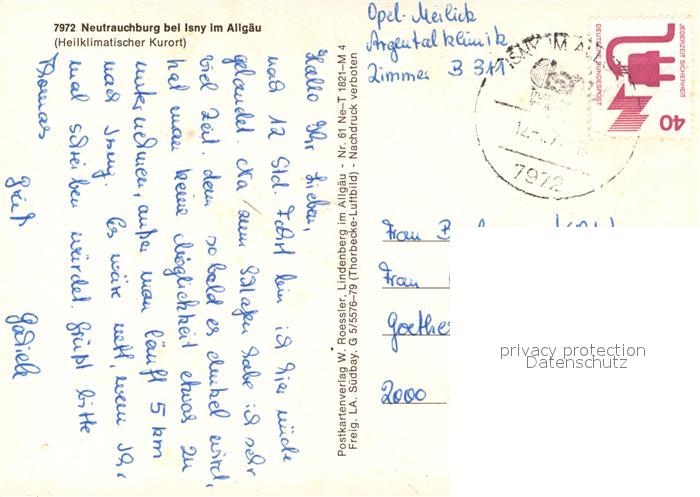 7972 Neutrauchburg bei Isny im Allgäu
(Heilklimatischer Kurort)
Opel-Meilick
Argentalklinik
Zimmer B 311
ISNY IM
14
77
7972
JEDERZEIT SICHERHEIT
DEUTSCHE BUNDESPOST
40
Hallo Ihr Lieben,
nach 12 Std. Fahrt bin ich hier müde
gelandet. Na / zum Schlafen habe ich sehr
viel Zeit, denn sobald es dunkel wird,
hat man keine Möglichkeit etwas zu
unternehmen, außer man läuft 5 km
nach Isny. Es wäre nett, wenn Ihr
mal schreiben würdet. Grüßt bitte
Thomas
Gruß
Gabriele
Postkartenverlag W. Roessler, Lindenberg im Allgäu - Nr. 61 Ne-T 1821-M 4
Freig. LA. Südbay. G 5/5576-79 (Thorbecke-Luftbild) - Nachdruck verboten
Frau B
Frau
Goethes
2000
privacy protection
Datenschutz